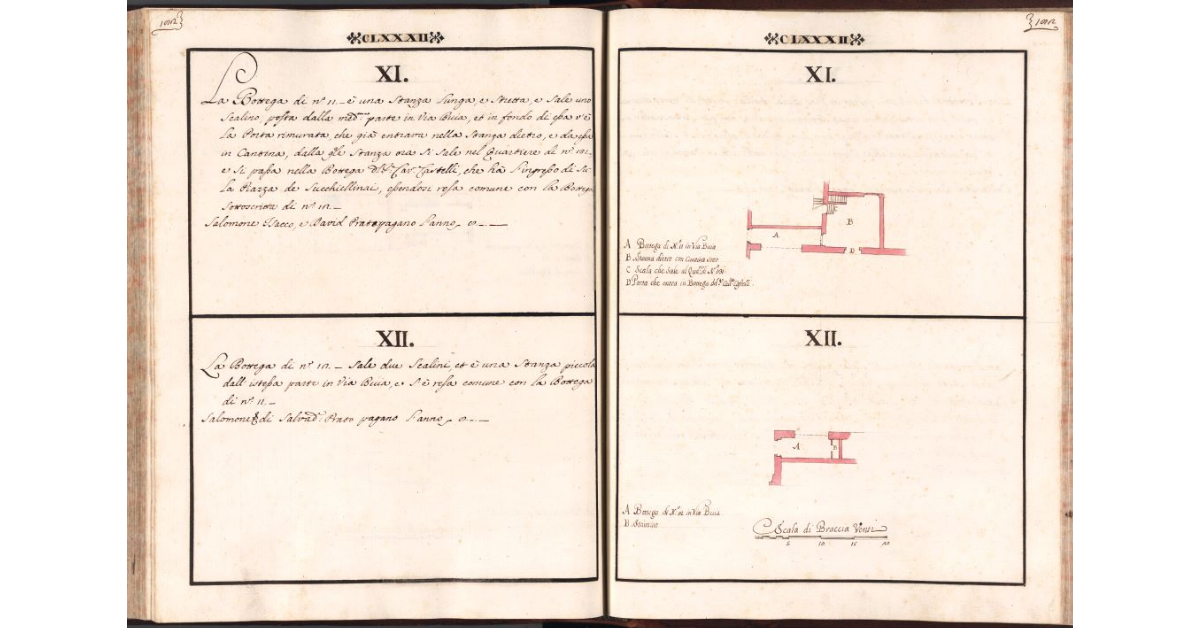 CLXXXII
XI.
La Bottega di nº 11 – è una Stanza lunga, e Stretta, e Sale uno
Scalino, posta dalla med.ª parte in Via Buia, et in fondo di essa v'è
la Porta rimurata che già entrava nella Stanza dietro, e da essa
in Cantina, dalla qle Stanza ora si Sale nel Quartiere di nº
e si passa nella Bottega Cav. Castelli, che hà l'ingresso di Su
la Piazza de Succhiellinai, essendosi resa comune con la Bottega
Sottoscritta di nº 12. –
Salomone Isacco, e David Prato pagano l'anno
XII.
La Bottega di nº 12. – Sale due Scalini, et è una Stanza piccola
dall'istessa parte in Via Buia, e S'è resa comune con la Bottega
di nº 11 –
Salomone di Prato pagano l'anno
CLXXXII
XI.
A
B
C
D
A Bottega di Nº 11 in Via Buia
B Stanza dietro con Cantina sotto
C Scala che Sale al Quart.e di Nº
D Porta che entra in Bottega del Castelli
XII.
A
B
A Bottega di Nº 12 in Via Buia
B
Scala di Braccia Venti
5 10 15 20